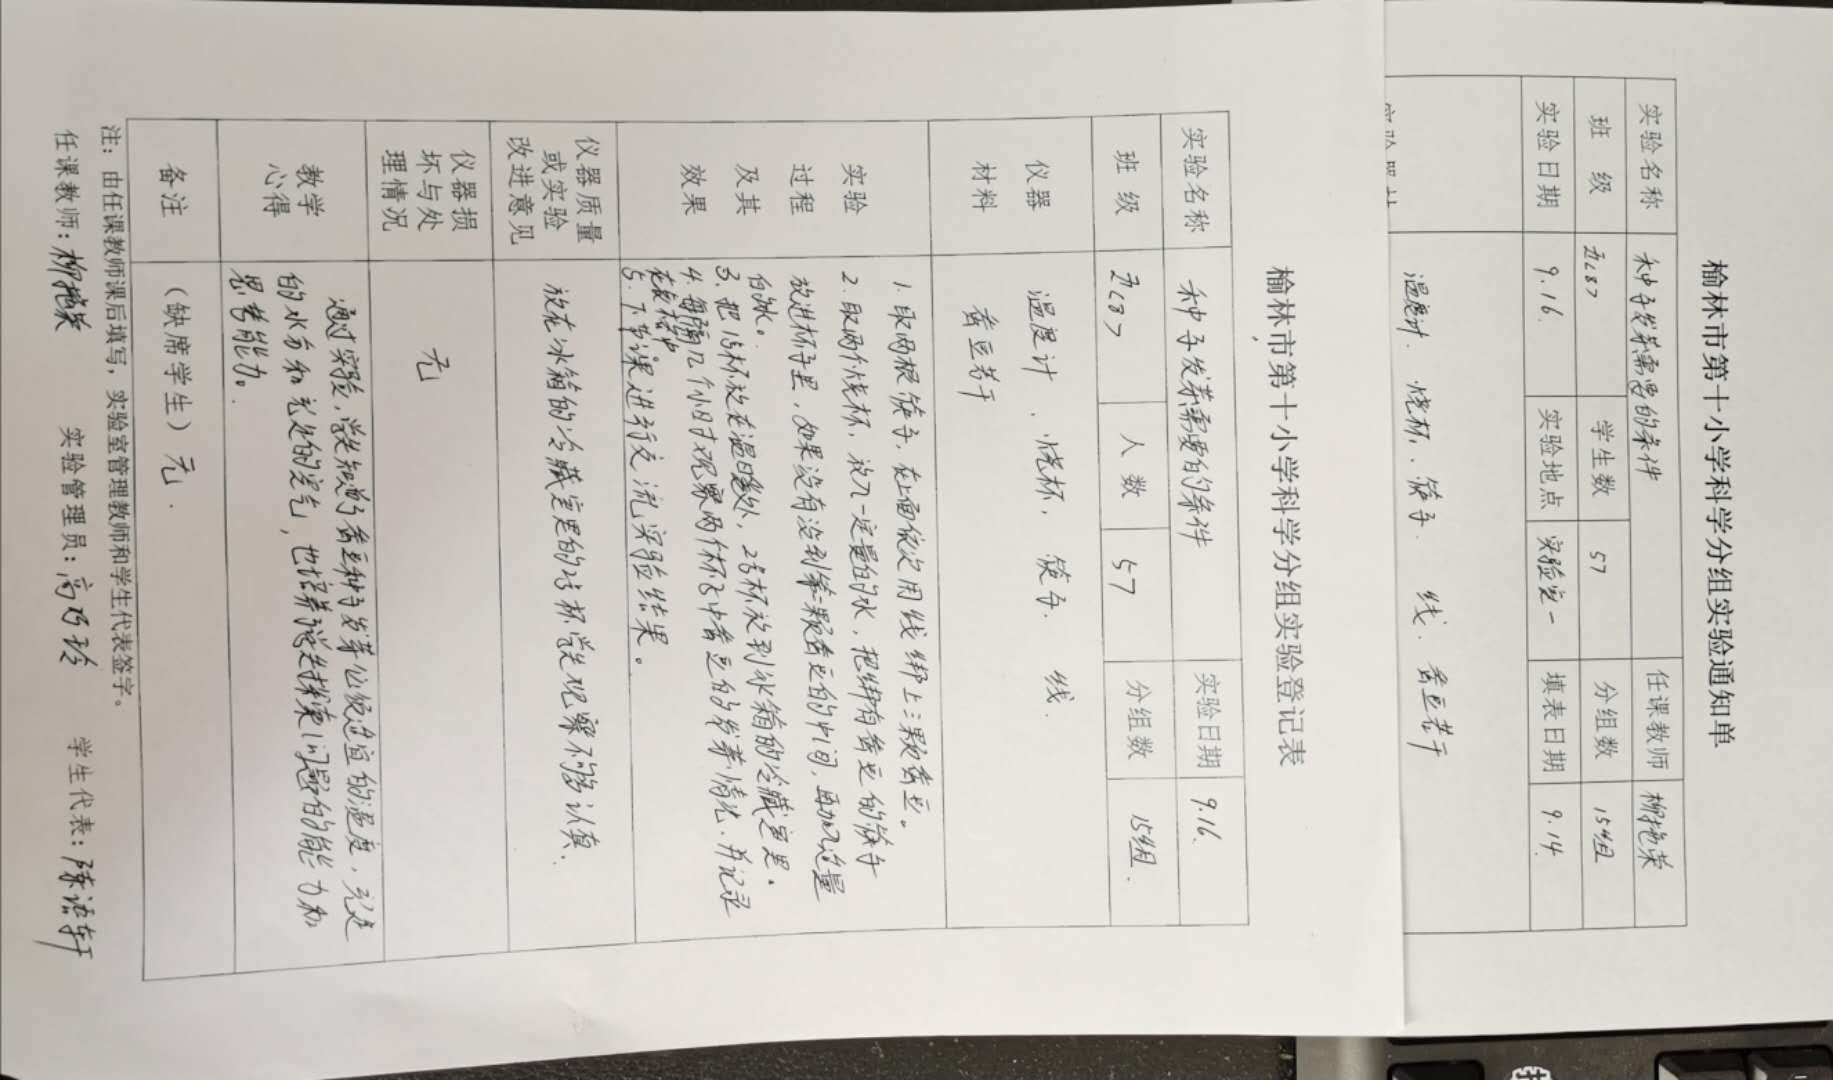 榆林市第十小学科学分组实验通知单
实验名称 种子发芽需要的条件 任课教师
班 级 五(8) 学生数 57 分组数 15组
实验日期 9.16. 实验地点 实验室一 填表日期 9.14.
温度计. 烧杯. 筷子. 线. 蚕豆若干
榆林市第十小学科学分组实验登记表
实验名称 种子发芽需要的条件 实验日期 9.16.
班 级 五(8) 人 数 57 分组数 15组.
仪器
材料
温度计. 烧杯. 筷子. 线.
蚕豆若干
实验
过程
及其
效果
1. 取两根筷子, 在上面依次用线绑上三颗蚕豆。
2. 取两个烧杯, 放入一定量的水, 把绑有蚕豆的筷子
放进杯子里, 如果没有没到第二颗蚕豆的中间, 再加适量
的水。
3. 把1号杯放在温暖处, 2号杯放到冰箱的冷藏室里。
4. 每隔几个小时观察两个杯子中蚕豆的发芽情况. 并记录
在表格中
5. 下节课进行交流实验结果。
仪器质量
或实验
改进意见
放在冰箱的冷藏室里的2号杯学生观察不够认真.
仪器损
坏与处
理情况
无
教学
心得
通过实验, 学生知道了蚕豆种子发芽必须适宜的温度, 充足
的水分和充足的空气, 也培养学生探索问题的能力和
思考能力。
备注
(缺席学生) 无.
注: 由任课教师课后填写, 实验室管理教师和学生代表签字。
任课教师: 实验管理员: 高乃玲 学生代表: 陈语轩